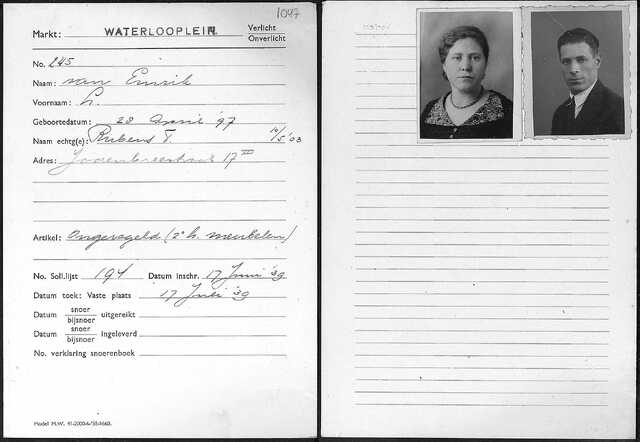 1047
Markt: WATERLOOPLEIN. Verlicht
Onverlicht
No. 245
Naam: van Emrik
Voornaam: L.
Geboortedatum: 28 April '97
Naam echtg(e): Rubens T. 14/5 '03
Adres: Jodenbreestraat 17 III
Artikel: Ongeregeld (2e h. meubelen)
No. Soll.lijst 194 Datum inschr. 17 Juni '39
Datum toek: Vaste plaats 17 Juli '39
Datum snoer
bijsnoer uitgereikt
Datum snoer
bijsnoer ingeleverd
No. verklaring snoerenboek
Model M.W.